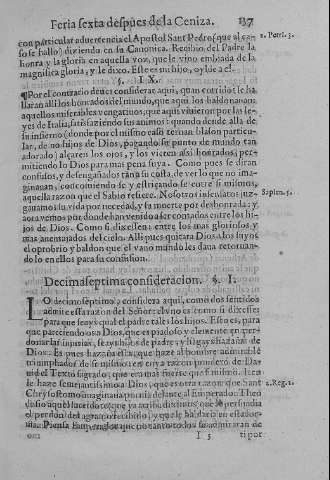 Feria sexta despues de la Ceniza. 137
con particular aduertencia el Apostol Sant Pedro (que al ca- 2. Petri. 3.
so se hallo) diziendo en su Canonica. Recibio del Padre la
honra y la gloria en aquella voz, que le vino embiada de la
magnifica gloria, y le dixo. Este es mi hijo, oylde a el.
§. IX.
¶Por el contrario deues considerar aqui, quan corridos se ha
llaran alli los honrados del mundo, que aqui los baldonauan
aquellos miserables vengatiuos; que aqui viuieron por las le-
yes de satisfaziendo sus animos: quando desde alla de
se infierno (donde por el mismo caso ternan blason particu-
lar, de no hijos de Dios, pagando se punto de mundo tan
adorado) alçaren los ojos, y los vieren assi honrados; per-
mitiendo lo Dios para mas pena suya. Como pues se diran
confusos, y desengañados tan a su costa, de ver lo que no ima-
ginauan; concomiendo se y estrigando se entre si mismos,
aquella razon que el Sabio refiere. Nosotros insensatos juz- Sapien. 5.
gauamos su vida por necedad, y su muerte por deshonrada: y
aora vemos por donde han venido a ser contados entre los hi-
jos de Dios. Como si dixessen: entre los mas gloriosos y
mas auentajados del cielo. Alli pues quitara Dios a los suyos
el oprobrio y baldon que el vano mundo les daua: retornan-
do lo en ellos para su confusion.
Decimaseptima consideracion. §. I.
LO decimoseptimo, considera aqui, como dos sentidos
admite esta razon del Señor: el vno es como si dixesse:
para que seays qual el padre tales los hijos. Esto es, para
que pareciendoos a Dios, que es piadoso y clemente en per-
donar las injurias, seays hijos de padre, y sigays hazañas de
Dios. Es pues hazaña esta, que haze al hombre admirable
triumphador de si mismo: en cuya razon pondero de Da-
uid el Texto sagrado; que era mas fuerte que si mismo. Iten
le haze semejantissimo a Dios, que es otra razon que Sant 2. Reg. 1.
Chrysostomo imaginaua ponia delante al Emperador Theo
dosio aquel sacerdote; que yua a persuadia
el perdon del agrauio recebido, y que le
Piensa Emperador que no tanto todos se admiraran de
I 5 ti por